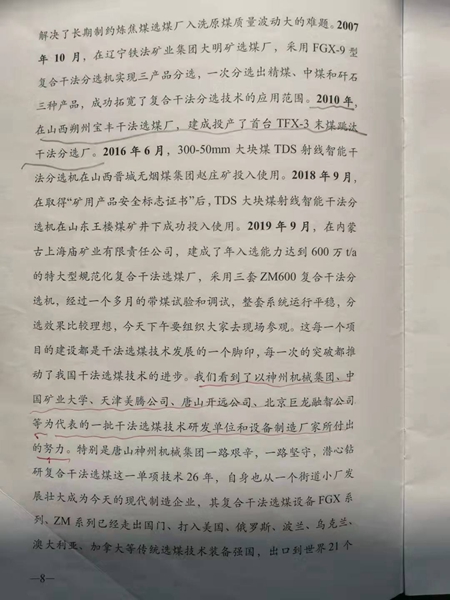 解决了长期制约炼焦煤选煤厂入洗原煤质量波动大的难题。2007
年 10 月，在辽宁铁法矿业集团大明矿选煤厂，采用 FGX-9 型
复合干法分选机实现三产品分选，一次分选出精煤、中煤和矸石
三种产品，成功拓宽了复合干法分选技术的应用范围。2010 年，
在山西朔州宝丰干法选煤厂，建成投产了首台 TFX-3 末煤跳汰
干法分选厂。2016 年 6 月，300-50mm 大块煤 TDS 射线智能干
法分选机在山西晋城无烟煤集团赵庄矿投入使用。2018 年 9 月，
在取得“矿用产品安全标志证书”后，TDS 大块煤射线智能干法分
选机在山东王楼煤矿井下成功投入使用。2019 年 9 月，在内蒙
古上海庙矿业有限责任公司，建成了年入选能力达到 600 万 t/a
的特大型规范化复合干法选煤厂，采用三套 ZM600 复合干法分
选机，经过一个多月的带煤试验和调试，整套系统运行平稳，分
选效果比较理想，今天下午要组织大家去现场参观。这每一个项
目的建设都是干法选煤技术发展的一个脚印，每一次的突破都推
动了我国干法选煤技术的进步。我们看到了以神州机械集团、中
国矿业大学、天津美腾公司、唐山开远公司、北京巨龙融智公司
等为代表的一批干法选煤技术研发单位和设备制造厂家所付出
的努力。特别是唐山神州机械集团一路艰辛，一路坚守，潜心钻
研复合干法选煤这一单项技术 26 年，自身也从一个街道小厂发
展壮大成为今天的现代制造企业，其复合干法选煤设备 FGX 系
列、ZM 系列已经走出国门、打入美国、俄罗斯、波兰、乌克兰、
澳大利亚、加拿大等传统选煤技术装备强国，出口到世界 21 个
—8—